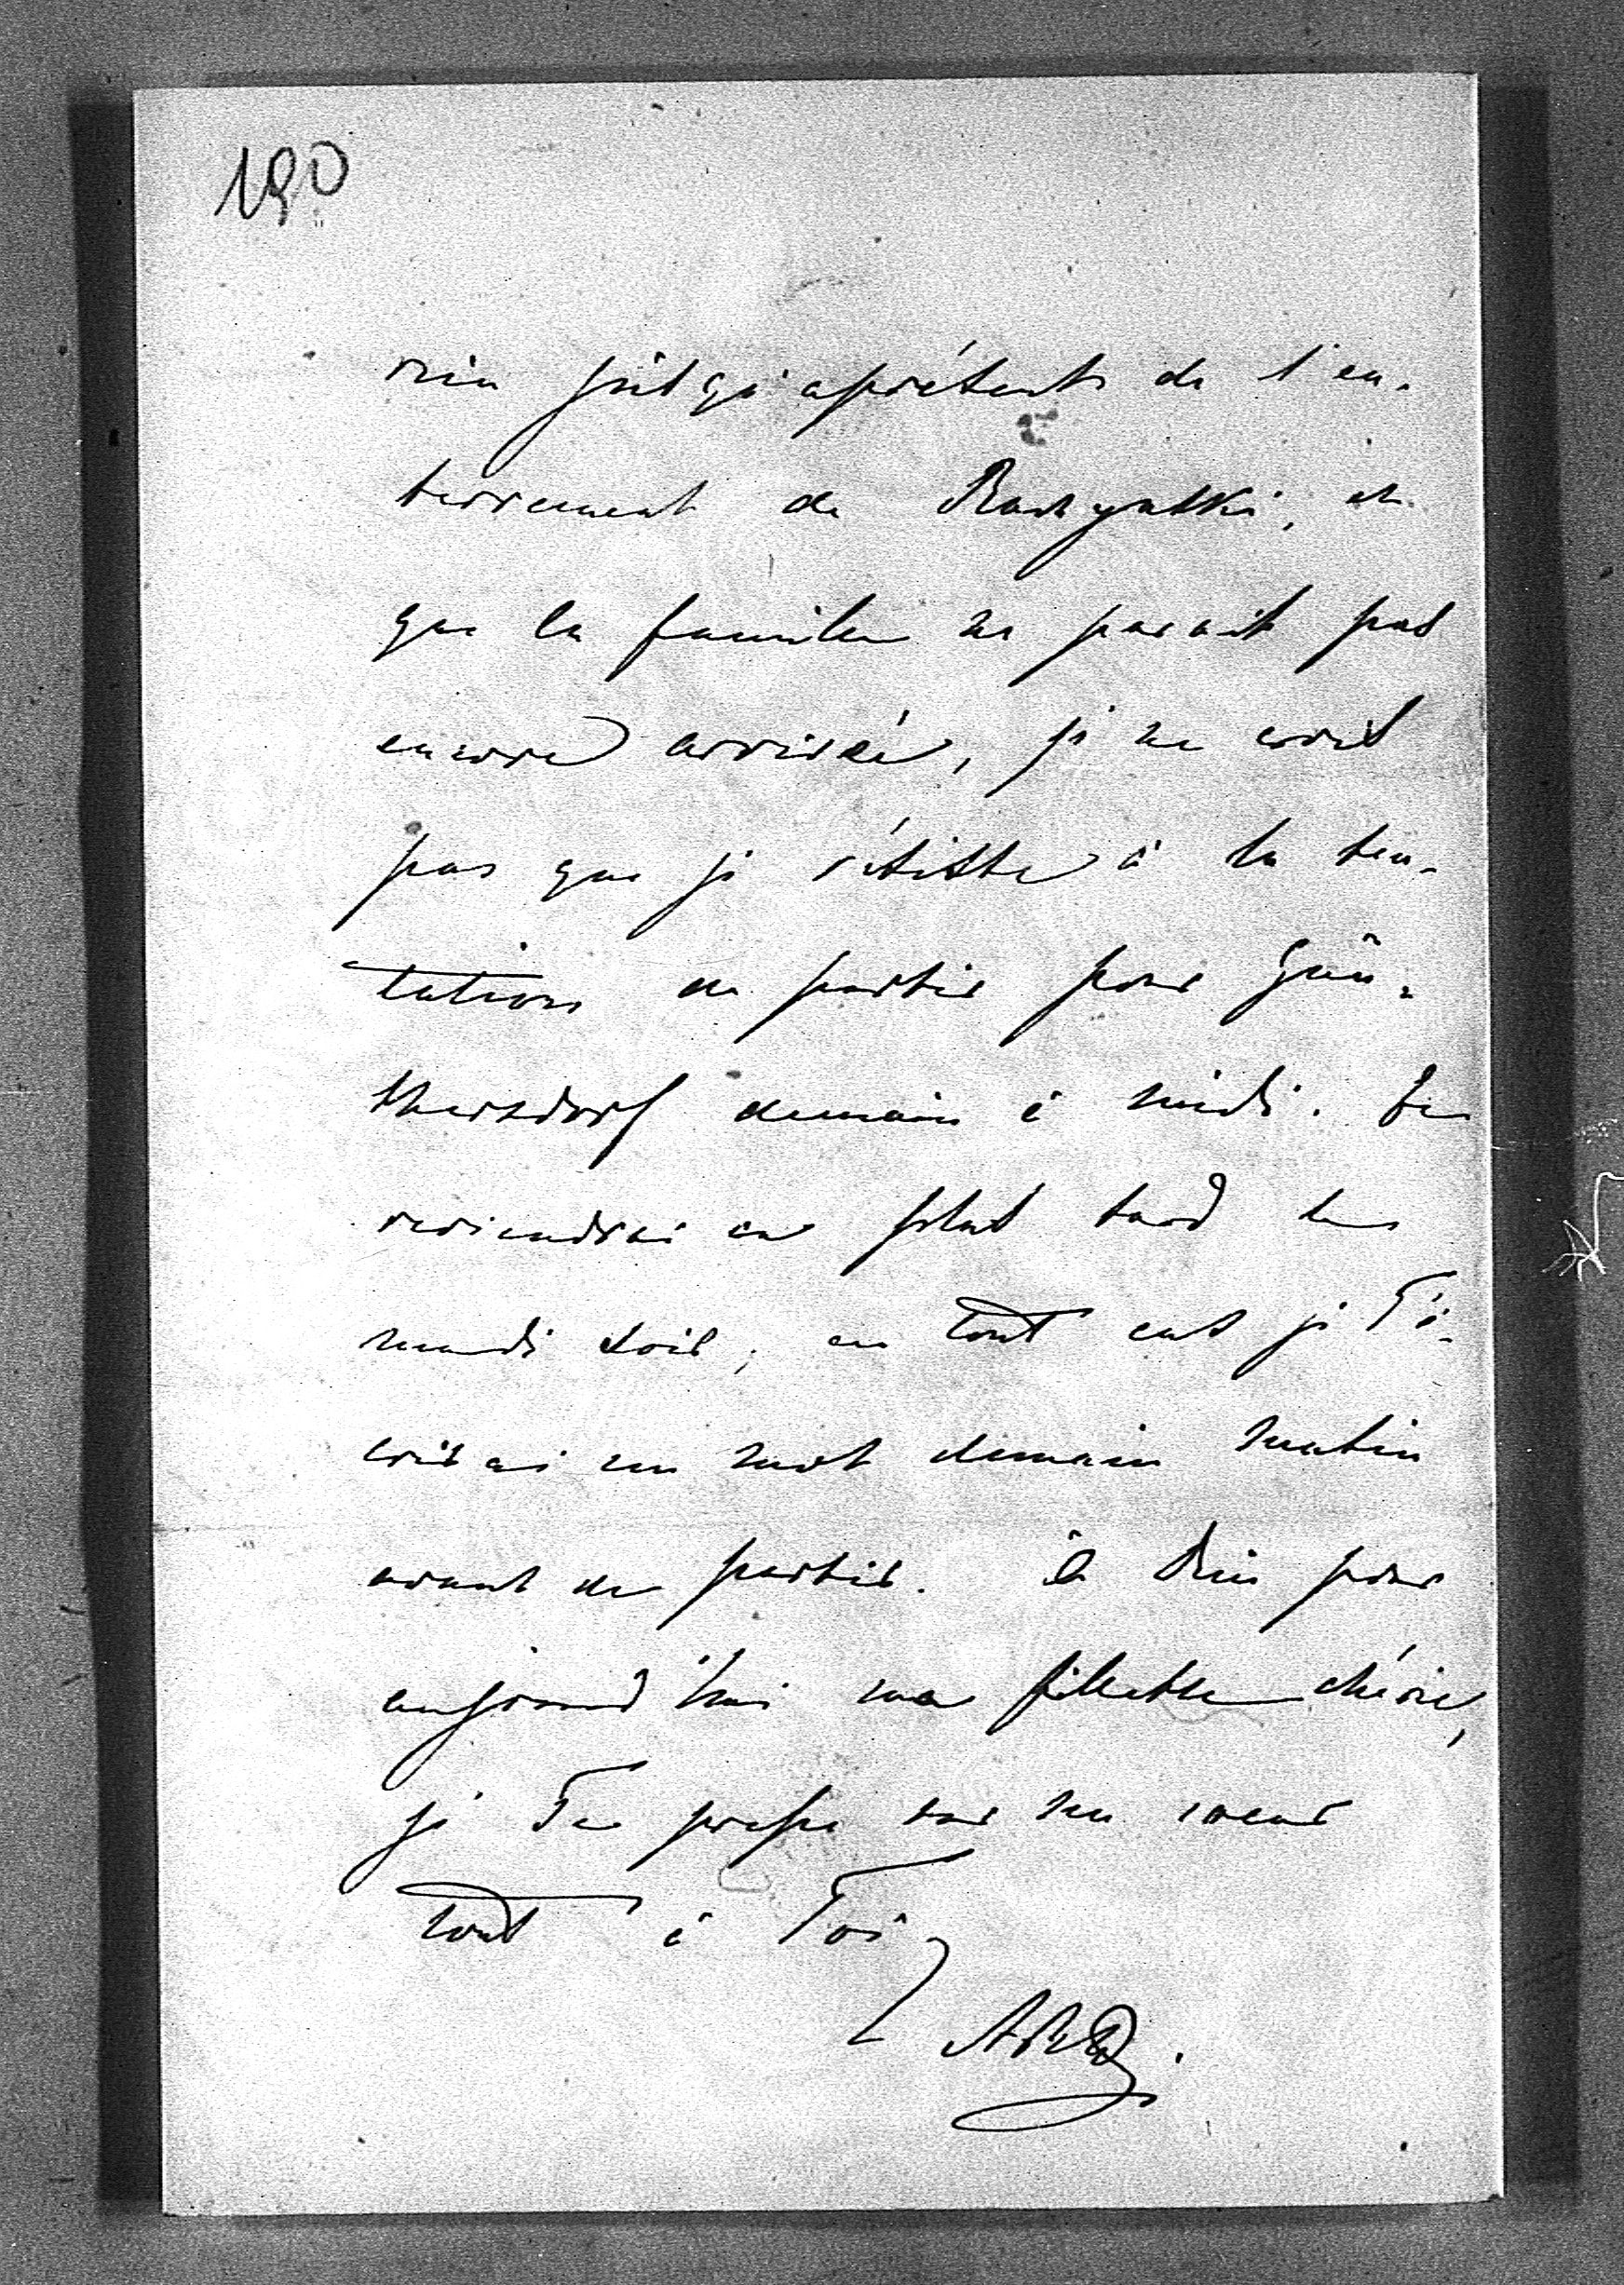 190
rien jusqu'aprésent de l'en-
terrement de Raczynski, et
que la famille ne parait pas
encore arrivée, je ne crois
pas que je résiste à la ten-
tation de partir pour Gün-
thersdorf demain à midi. Je
reviendrai au plus tard le
mardi soir, en tout cas je T'é-
crirai un mot demain matin
avant de partir. à Dieu pour
aujourd'hui ma fillette chérie,
je Te presse sur mon coeur
tout à Toi